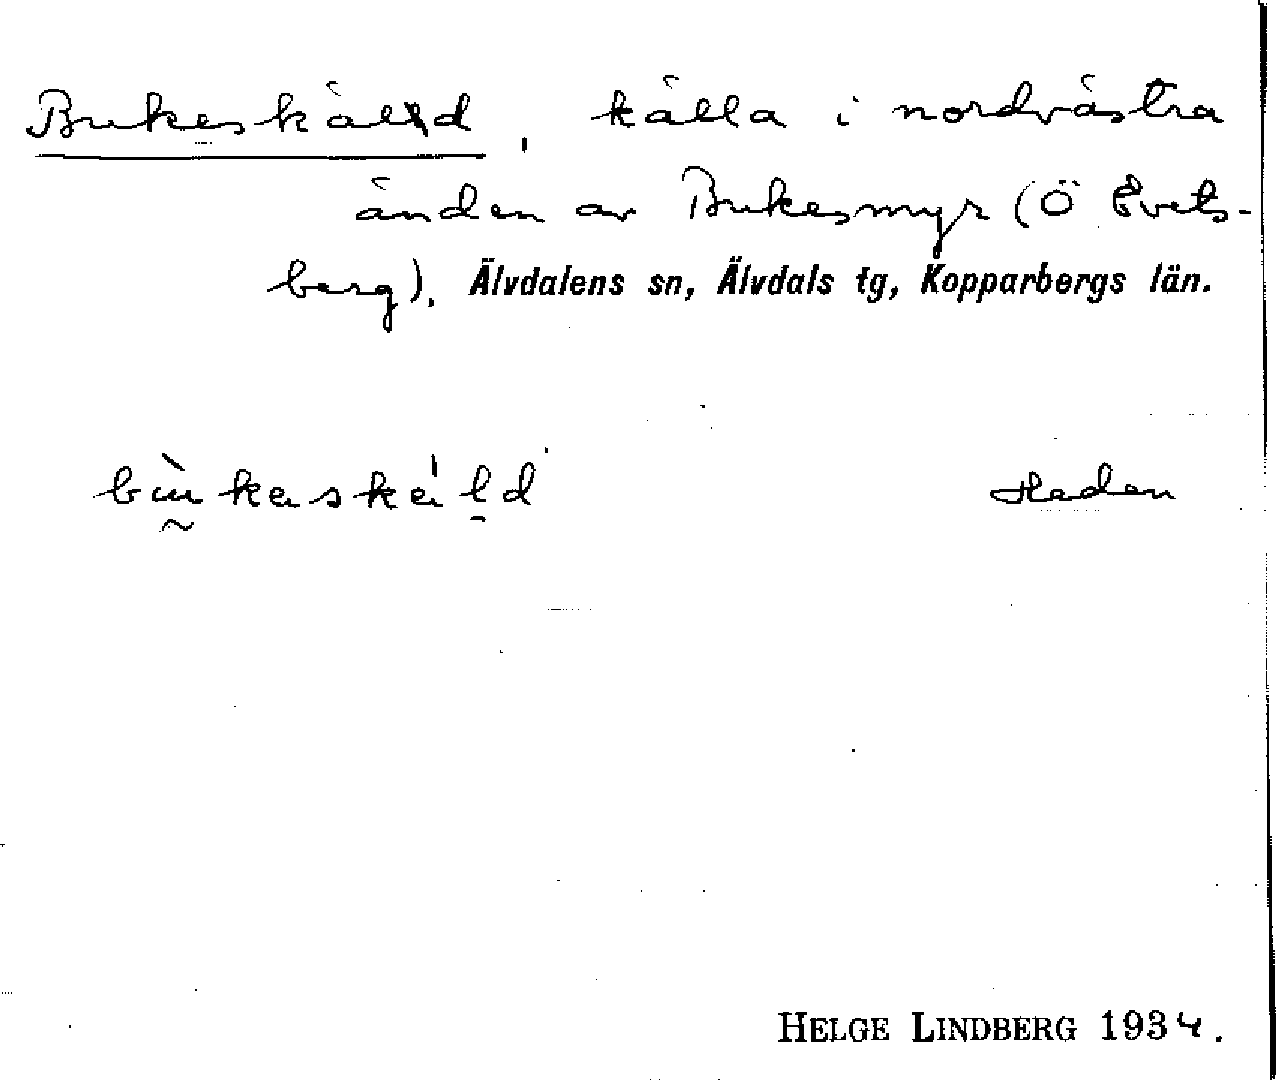 Bukeskälld, källa i nordvästra
änden av Bukesmyr (Ö Evets-
berg), Älvdalens sn, Älvdals tg, Kopparbergs län.
bùkaskäld Heden
HELGE LINDBERG 1934.